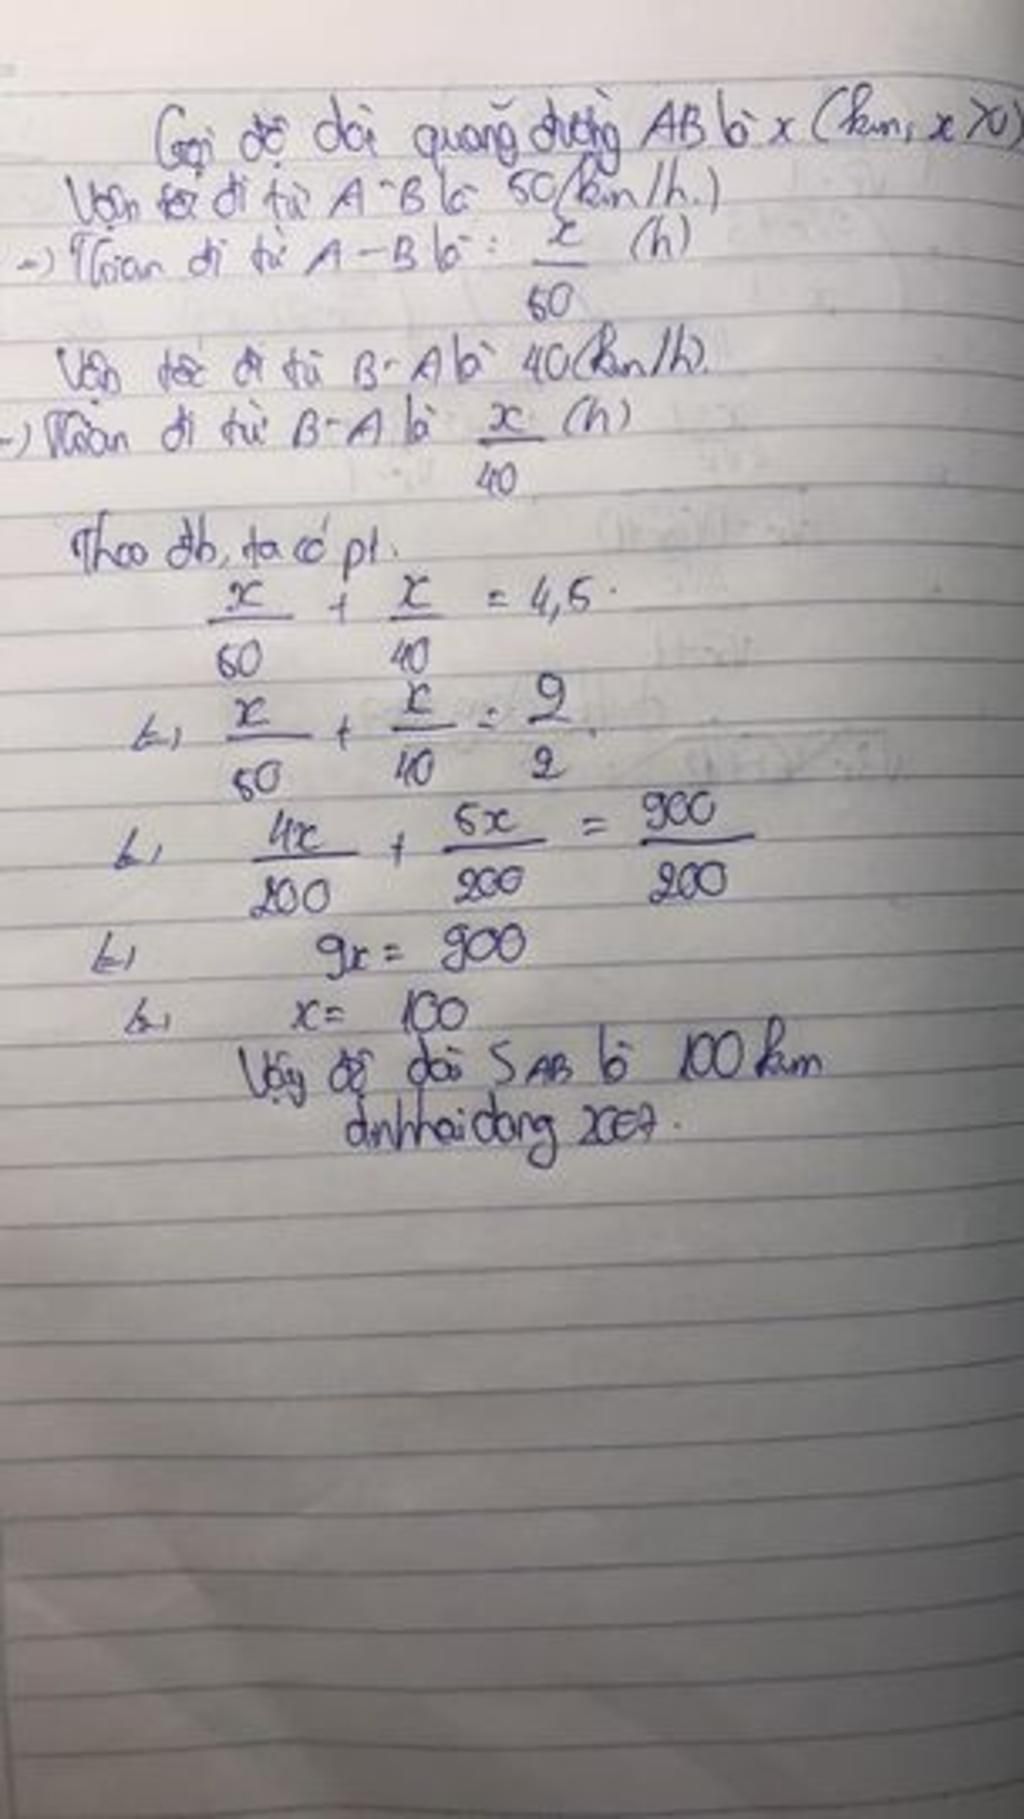 Gọi độ dài quãng đường AB là x (km, x>0)
Vận tốc đi từ A-B là 50(km/h.)
=) Tgian đi từ A-B là: x/50 (h)
Vận tốc đi từ B-A là 40(km/h).
=) Tgian đi từ B-A là x/40 (h)
Theo đb, ta có pt.
x/50 + x/40 = 4,5.
(=) x/50 + x/40 = 9/2.
(=) 4x/200 + 5x/200 = 900/200
(=) 9x = 900
(=) x = 100
Vậy độ dài SAB là 100km